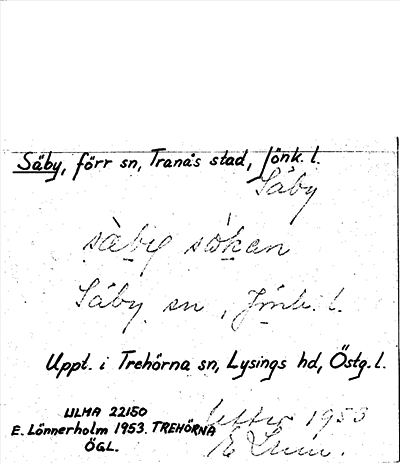 Säby, förr sn, Tranås stad, Jönk. l.
Säby
sàby sòkan
Säby sn, Jönk. l.
Uppt. i Trehörna sn, Lysings hd, Östg. l.
ULMA 22150
E. Lönnerholm 1953. TREHÖRNA
ÖGL.
1953
E